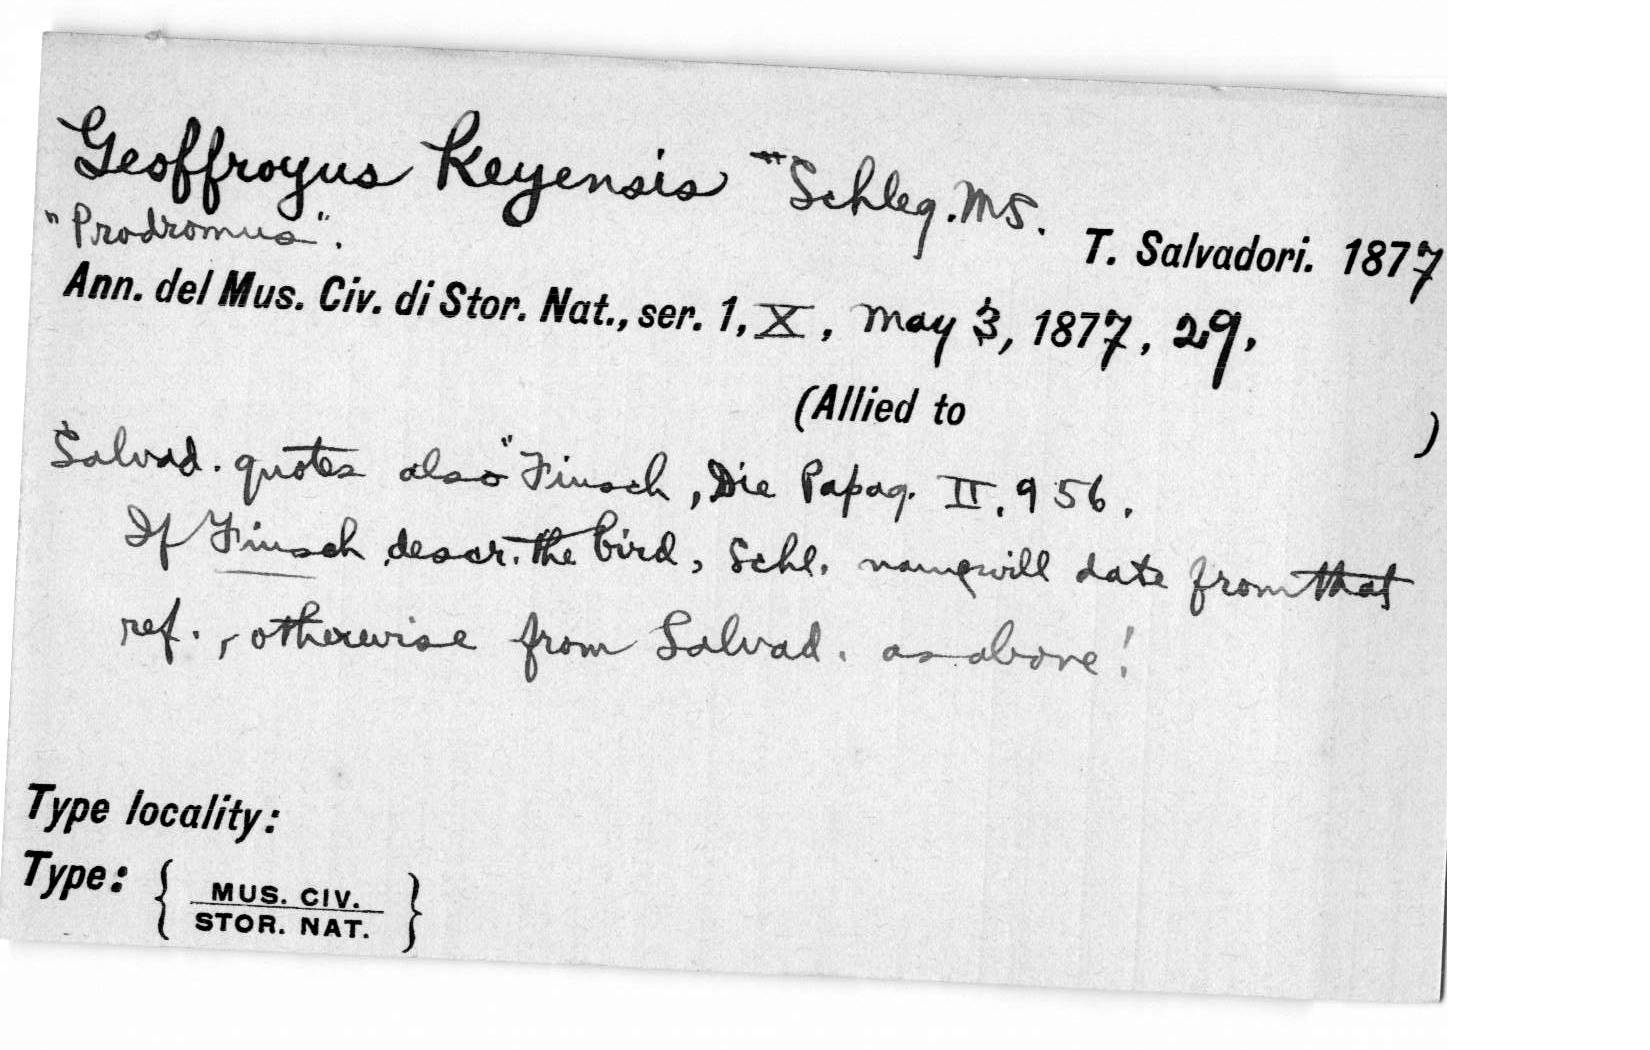 Geoffroyus keyensis "Schleg. MS.
"Prodromus".
T. Salvadori. 1877
Ann. del Mus. Civ. di Stor. Nat., ser. 1, X, May 3, 1877, 29.
(Allied to )
Salvad. quotes also "Finsch, Die Papag. II. 956.
If Finsch descr. the bird, Schl. name will date from that
ref., otherwise from Salvad. as above!
Type locality:
Type: { MUS. CIV.
STOR. NAT. }